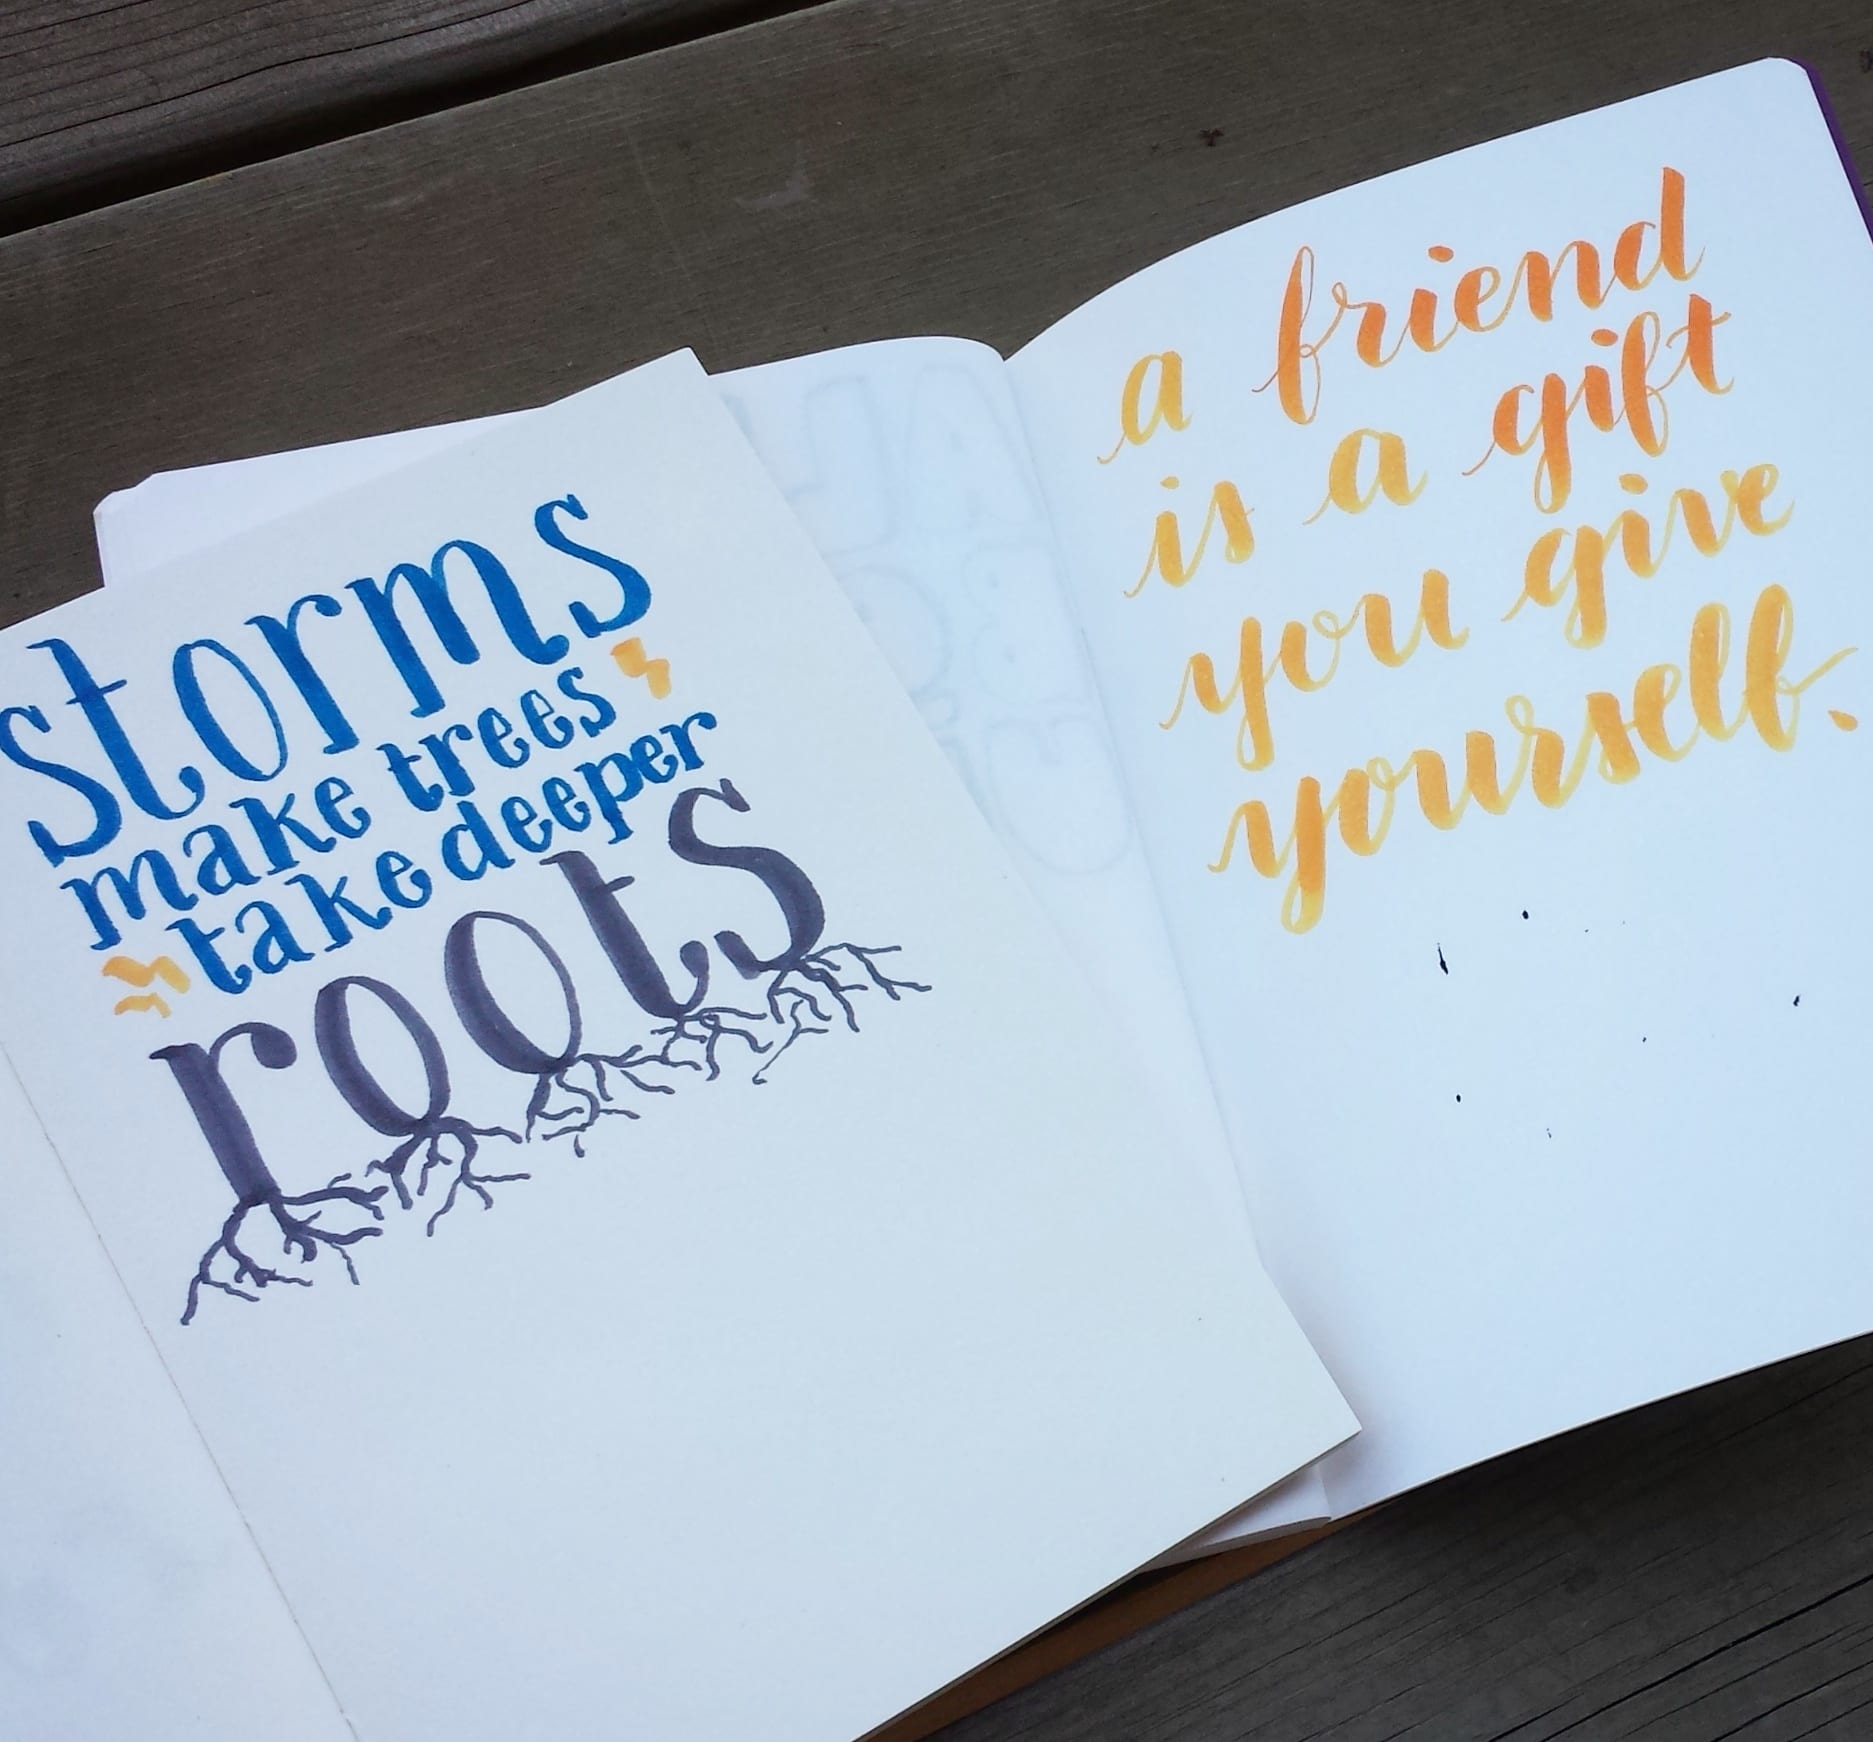 storms
make trees
take deeper
roots
a friend
is a gift
you give
yourself.